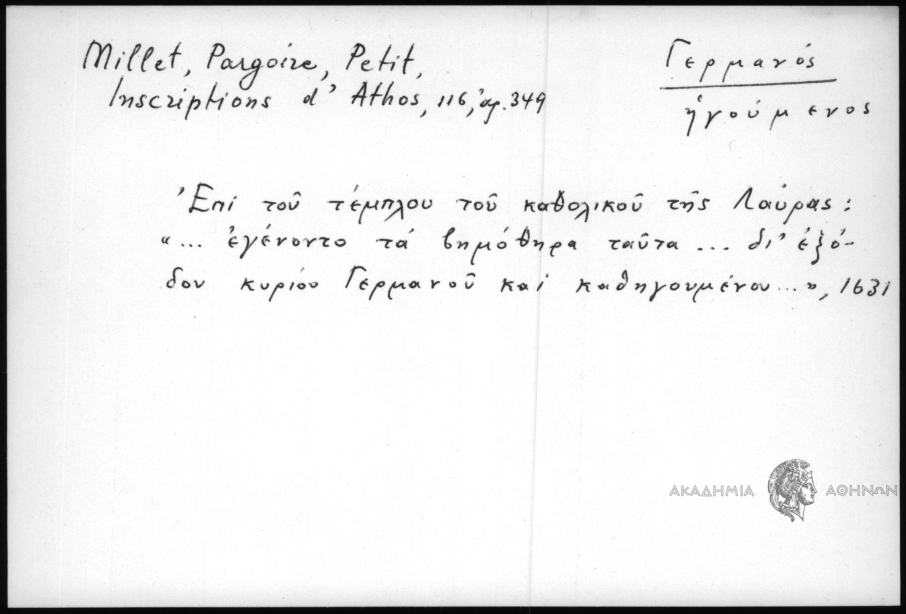 Millet, Pargoire, Petit,
Inscriptions d' Athos, 116, ἀρ. 349
Γερμανός
ἡγούμενος
Ἐπί τοῦ τέμπλου τοῦ καθολικοῦ τῆς Λαύρας:
"... ἐγένοντο τά βημόθηρα ταῦτα ... δι' ἐξό-
δου κυρίου Γερμανοῦ καί καθηγουμένου ...", 1631
ΑΚΑΔΗΜΙΑ ΑΘΗΝΩΝ